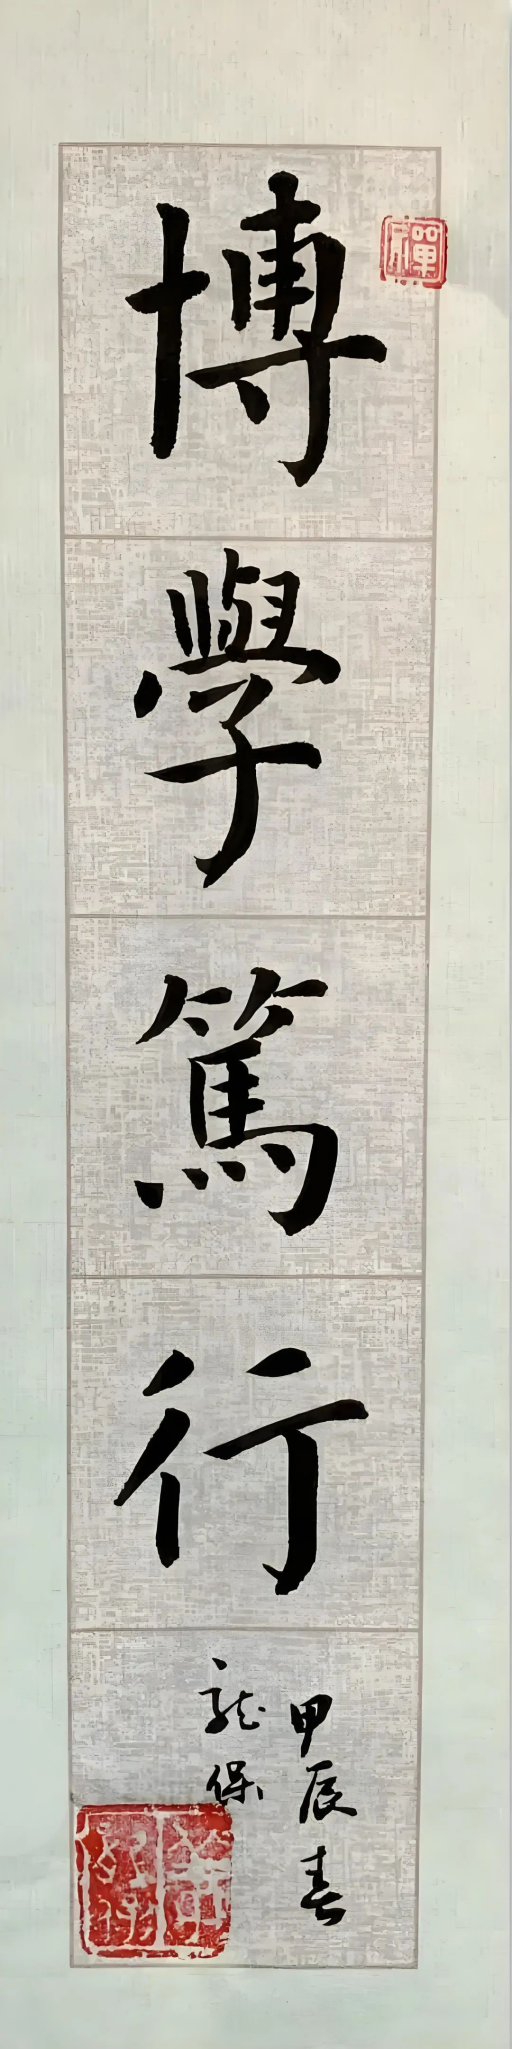 博學篤行
甲辰春
龍保
禪